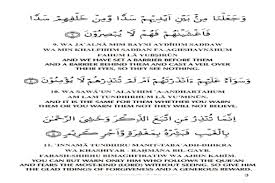 وَجَعَلْنَا مِنْ بَيْنِ أَيْدِيهِمْ سَدًّا وَمِنْ خَلْفِهِمْ سَدًّا
فَأَغْشَيْنَاهُمْ فَهُمْ لَا يُبْصِرُونَ
9. WA JA'ALNĀ MIM BAYNI AYDIHIM SADDAW
WA MIN KHALFIHIM SADDAN FA-AGHSHAYNĀHUM
FAHUM LĀ YUBSIRŪN
AND WE HAVE SET A BARRIER BEFORE THEM
AND A BARRIER BEHIND THEM AND CAST A VEIL OVER
THEIR EYES, SO THEY CANNOT SEE.
وَسَوَاءٌ عَلَيْهِمْ أَأَنْذَرْتَهُمْ أَمْ لَمْ تُنْذِرْهُمْ لَا يُؤْمِنُونَ
10. WA SAWĀ'UN 'ALAYHIM 'A-ANDHARTAHUM
AM LAM TUNDHIRHUM LĀ YU'MINŪN.
AND IT IS THE SAME FOR THEM WHETHER YOU WARN
THEM OR YOU WARN THEM NOT THEY WILL NOT BELIEVE.
إِنَّمَا تُنْذِرُ مَنِ اتَّبَعَ الذِّكْرَ وَخَشِيَ الرَّحْمَٰنَ
بِالْغَيْبِ فَبَشِّرْهُ بِمَغْفِرَةٍ وَأَجْرٍ كَرِيمٍ
11. 'INNAMĀ TUNDHIRU MANIT-TABA'ADH-DHIKRA
WA KHASHIYAR - RAHMĀNA BIL GAYB.
FABASH-SHIRHU BIMAGHFIRATIW WA AJRIN KARĪM.
YOU CAN BUT WARN ONLY HIM WHO FOLLOWS THE QUR'AN
AND FEARS THE MOST COMPASSIONATE WITHOUT SEEING, SO GIVE HIM
THE GLAD TIDINGS OF FORGIVENESS AND A GENEROUS REWARD.
3